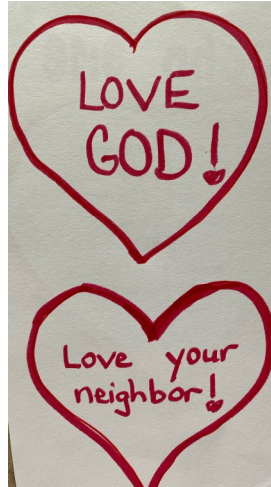 LOVE
GOD!
Love your
neighbor!